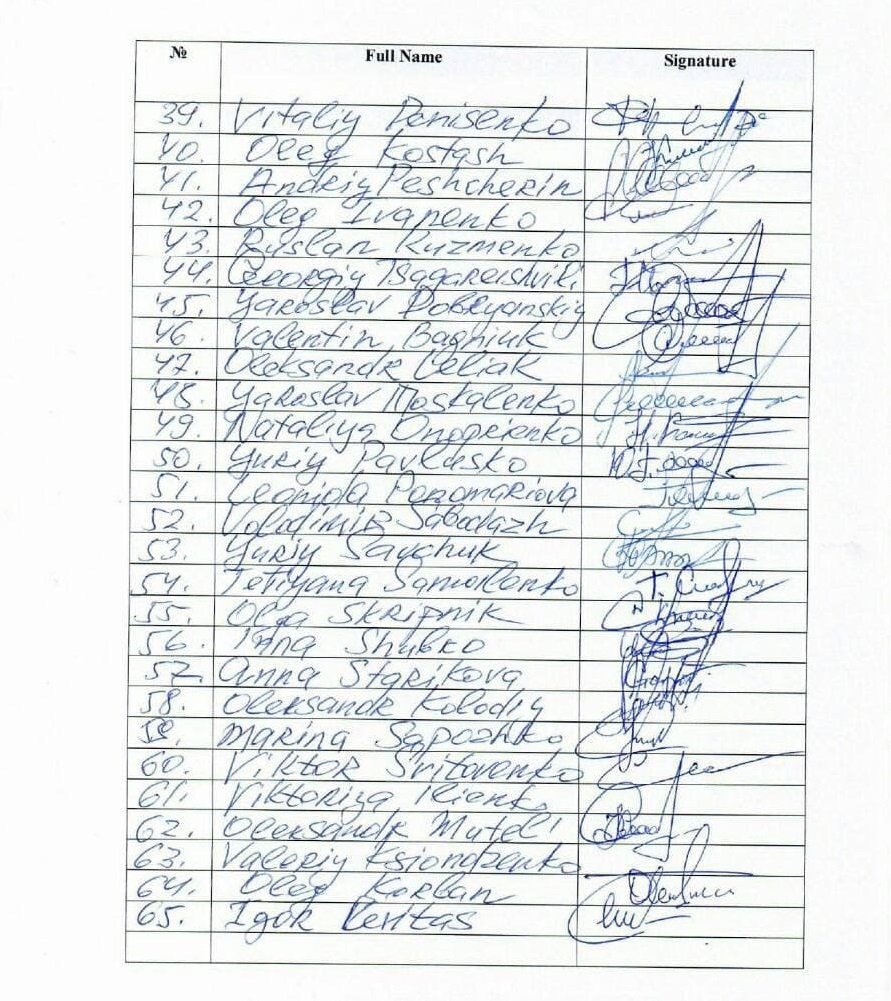 № Full Name Signature
39. Vitaliy Denisenko
40. Oleg Kostash
41. Andriy Peshcherin
42. Oleg Ivanenko
43. Ruslan Kuzmenko
44. Georgiy Tsagareishvili
45. Yaroslav Dobryanskiy
46. Valentin Bagniuk
47. Oleksandr
48. Yaroslav Moskalenko
49. Nataliya Onoprienko
50. Yuriy Pavlasko
51. Leonida Ponomariova
52. Volodimir Sabodazh
53. Yuriy Savchuk
54. Tetiyana Samoilenko
55. Olga Skripnik
56. Inna Shubko
57. Anna Starikova
58. Oleksandr Kolodiy
59. Marina Sapozhko
60. Viktor Svitovenko
61. Viktoriya Ilienko
62. Oleksandr
63. Valeriy Ksiondzenko
64. Oleg Korban
65. Igor Veritas